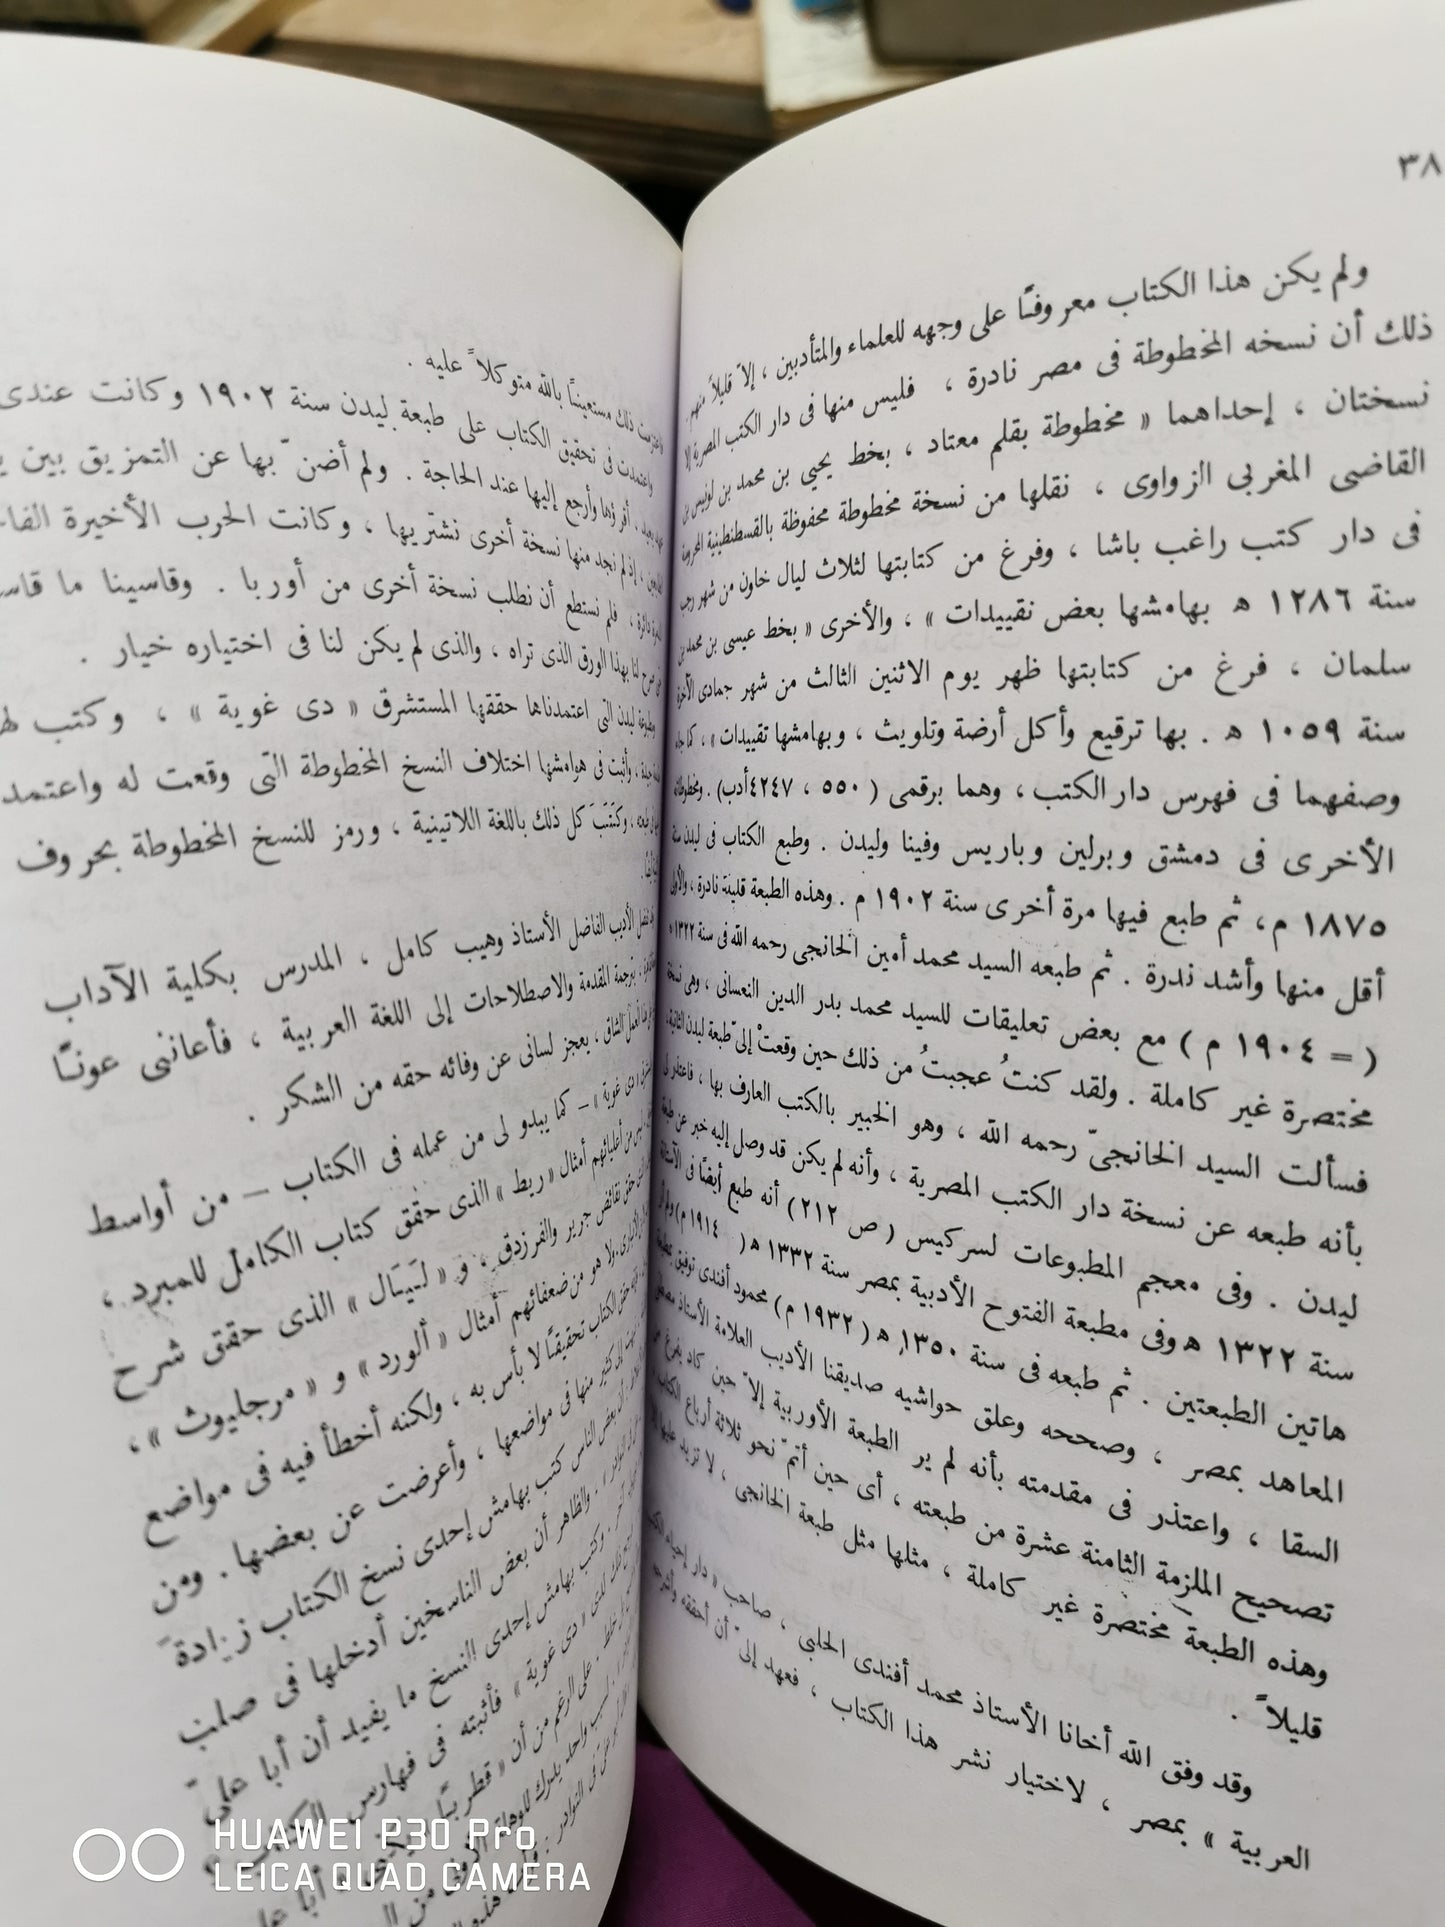 ٣٨
ولم يكن هذا الكتاب معروفًا على وجهه للعلماء والمتأدبين ، إلاّ قليلاً منهم .
ذلك أن نسخه المخطوطة فى مصر نادرة ، فليس منها فى دار الكتب المصرية إلا
نسختان ، إحداهما « مخطوطة بقلم معتاد ، بخط يحيى بن محمد بن
القاضى المغربى الزواوى ، نقلها من نسخة مخطوطة محفوظة بالقسطنطينية المحروسة
فى دار كتب راغب باشا ، وفرغ من كتابتها لثلاث ليال خلون من شهر رجب
سنة ١٢٨٦ ﻫ بهامشها بعض تقييدات » ، والأخرى « بخط عيسى بن محمد بن
سلمان ، فرغ من كتابتها ظهر يوم الاثنين الثالث من شهر جمادى الآخرة
سنة ١٠٥٩ ﻫ . بها ترقيع وأكل أرضة وتلويث ، وبهامشها تقييدات » ، كما جاء
وصفهما فى فهرس دار الكتب ، وهما برقمى ( ٥٥٠ ، ٤٢٤٧ أدب ) . ومخطوطاته
الأخرى فى دمشق وبرلين وباريس وفينا وليدن . وطبع الكتاب فى ليدن سنة
١٨٧٥ م ، ثم طبع فيها مرة أخرى سنة ١٩٠٢ م . وهذه الطبعة قليلة نادرة ، والأولى
أقل منها وأشد ندرة . ثم طبعه السيد محمد أمين الخانجى رحمه الله فى سنة ١٣٢٢ ﻫ
( = ١٩٠٤ م ) مع بعض تعليقات للسيد محمد بدر الدين النعسانى ، وهى نسخة
مختصرة غير كاملة . ولقد كنتُ عجبتُ من ذلك حين وقعتْ إلىّ طبعة ليدن الثانية ،
فسألت السيد الخانجىّ رحمه الله ، وهو الخبير بالكتب العارف بها ، فاعتذر لى
بأنه طبعه عن نسخة دار الكتب المصرية ، وأنه لم يكن قد وصل إليه خبر عن طبعة
ليدن . وفى معجم المطبوعات لسركيس ( ص ٢١٢ ) أنه طبع أيضًا فى الآستانة
سنة ١٣٢٢ ﻫ وفى مطبعة الفتوح الأدبية بمصر سنة ١٣٣٢ ﻫ ( ١٩١٤ م ) ولم أر
هاتين الطبعتين . ثم طبعه فى سنة ١٣٥٠ ﻫ ( ١٩٣٢ م ) محمود أفندى توفيق
المعاهد بمصر ، وصححه وعلق حواشيه صديقنا الأديب العلامة الأستاذ مصطفى
السقا ، واعتذر فى مقدمته بأنه لم ير الطبعة الأوربية إلاّ حين كاد يفرغ من
تصحيح الملزمة الثامنة عشرة من طبعته ، أى حين أتمّ نحو ثلاثة أرباع الكتاب
وهذه الطبعة مختصرة غير كاملة ، مثلها مثل طبعة الخانجى ، لا تزيد عليها إلا
قليلاً .
وقد وفق الله أخانا الأستاذ محمد أفندى الحلبى ، صاحب « دار إحياء الكتب
العربية » بمصر ، لاختيار نشر هذا الكتاب ، فعهد إلىّ أن أحققه وأشرحه
ذلك مستعينًا بالله متوكلاً عليه .
واعتمدت فى تحقيق الكتاب على طبعة ليدن سنة ١٩٠٢ وكانت عندى
أقرؤها وأرجع إليها عند الحاجة . ولم أضنّ بها عن التمزيق بين
إذ لم نجد منها نسخة أخرى نشتريها ، وكانت الحرب الأخيرة
فلم نستطع أن نطلب نسخة أخرى من أوربا . وقاسينا ما
لنا بهذا الورق الذى تراه ، والذى لم يكن لنا فى اختياره خيار .
ليدن التى اعتمدناها حققها المستشرق « دى غوية » ، وكتب
وأثبت فى هوامشها اختلاف النسخ المخطوطة التى وقعت له واعتمد
وكَتَبَ كل ذلك باللغة اللاتينية ، ورمز للنسخ المخطوطة بحروف
الأديب الفاضل الأستاذ وهيب كامل ، المدرس بكلية الآداب
بترجمة المقدمة والاصطلاحات إلى اللغة العربية ، فأعاننى عونًا
العمل الشاق ، يعجز لسانى عن وفائه حقه من الشكر .
« دى غوية » — كما يبدو لى من عمله فى الكتاب — من أواسط
ليس من أعليائهم أمثال « ريط » الذى حقق كتاب الكامل للمبرد ،
حقق نقائض جرير والفرزدق ، و « لَيَال » الذى حقق شرح
ولا هو من ضعفائهم أمثال « ألورد » و « مرجليوث » ،
حقق الكتاب تحقيقًا لا بأس به ، ولكنه أخطأ فيه فى مواضع
كثير منها فى مواضعها ، وأعرضت عن بعضها . ومن
أن بعض الناس كتب بهامش إحدى نسخ الكتاب زيادةً
والظاهر أن بعض الناسخين أدخلها فى صلب
وكتب بهامش إحدى النسخ ما يفيد أن أبا علىّ
« دى غوية » فأثبته فى فهارس الكتاب
على الرغم من أن « قطربًا
HUAWEI P30 Pro
LEICA QUAD CAMERA